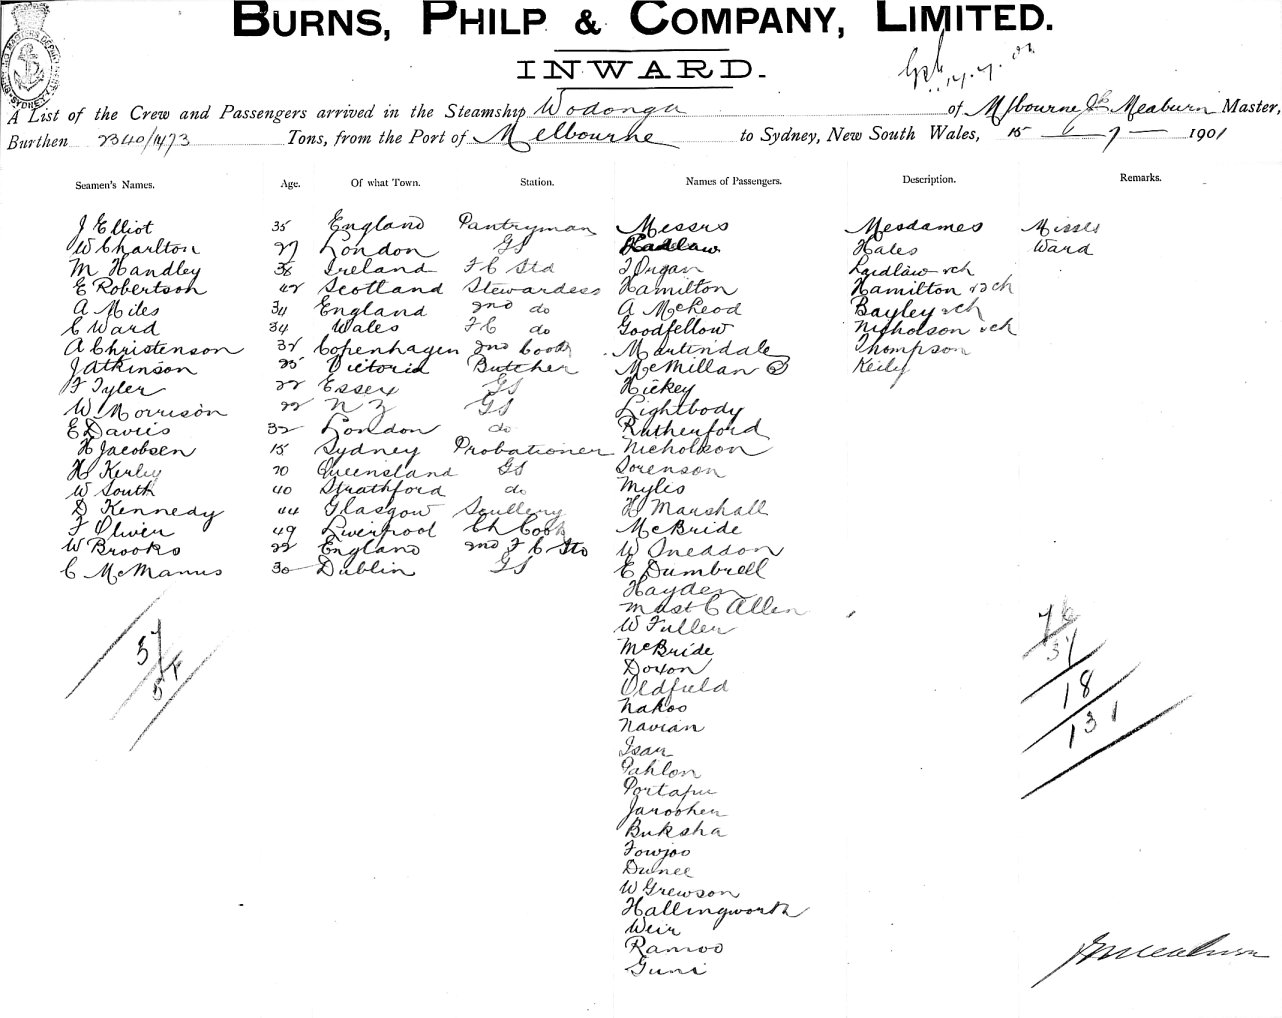 BURNS, PHILP & COMPANY, LIMITED.
INWARD.
A List of the Crew and Passengers arrived in the Steamship Wodonga of Melbourne Meaburn Master,
Burthen 2340/1473 Tons, from the Port of Melbourne to Sydney, New South Wales, 15 7 1901
Seamen's Names. Age. Of what Town. Station. Names of Passengers. Description. Remarks.
J Elliot 35 England Pantryman Messrs Mesdames Misses
W Charlton 27 London GS Laidlaw Hales Ward
M Handley 38 Ireland F C Std Laidlaw & ch
E Robertson 42 Scotland Stewardess Hamilton Hamilton & 2 ch
A Miles 34 England 2nd do A McLeod Bayley & ch
C Ward 34 Wales F C do Goodfellow Nicholson & ch
A Christenson 32 Copenhagen 2nd Cook Martindale Thompson
J Atkinson 25 Victoria Butcher McMillan Keily
F Tyler 22 Essex GS Hickey
W Morrison 22 N Z GS Lightbody
E Davies 32 London do Rutherford
H Jacobsen 15 Sydney Probationer Nicholson
H Kerley 20 Queensland GS Sorenson
W South 40 Strathford do Mylis
D Kennedy 44 Glasgow Scullery H Marshall
F Oliver 49 Liverpool Ch Cook McBride
W Brooks 22 England 2nd F C Std W Sneddon
C McManus 30 Dublin GS E Dumbrell
Hayden
Mast C Allen
W Fuller
McBride
Doxon
Oldfield
Nakoo
Navian
Isar
Gahlon
Jaroohen
Buksha
Fowjoo
Dunee
W Grewson
Hallingworth
Weir
Ramoo
Guni
76
37
18
131